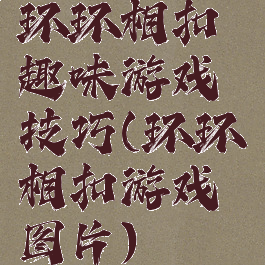 环环相扣
趣味游戏
技巧(环环
相扣游戏
图片)